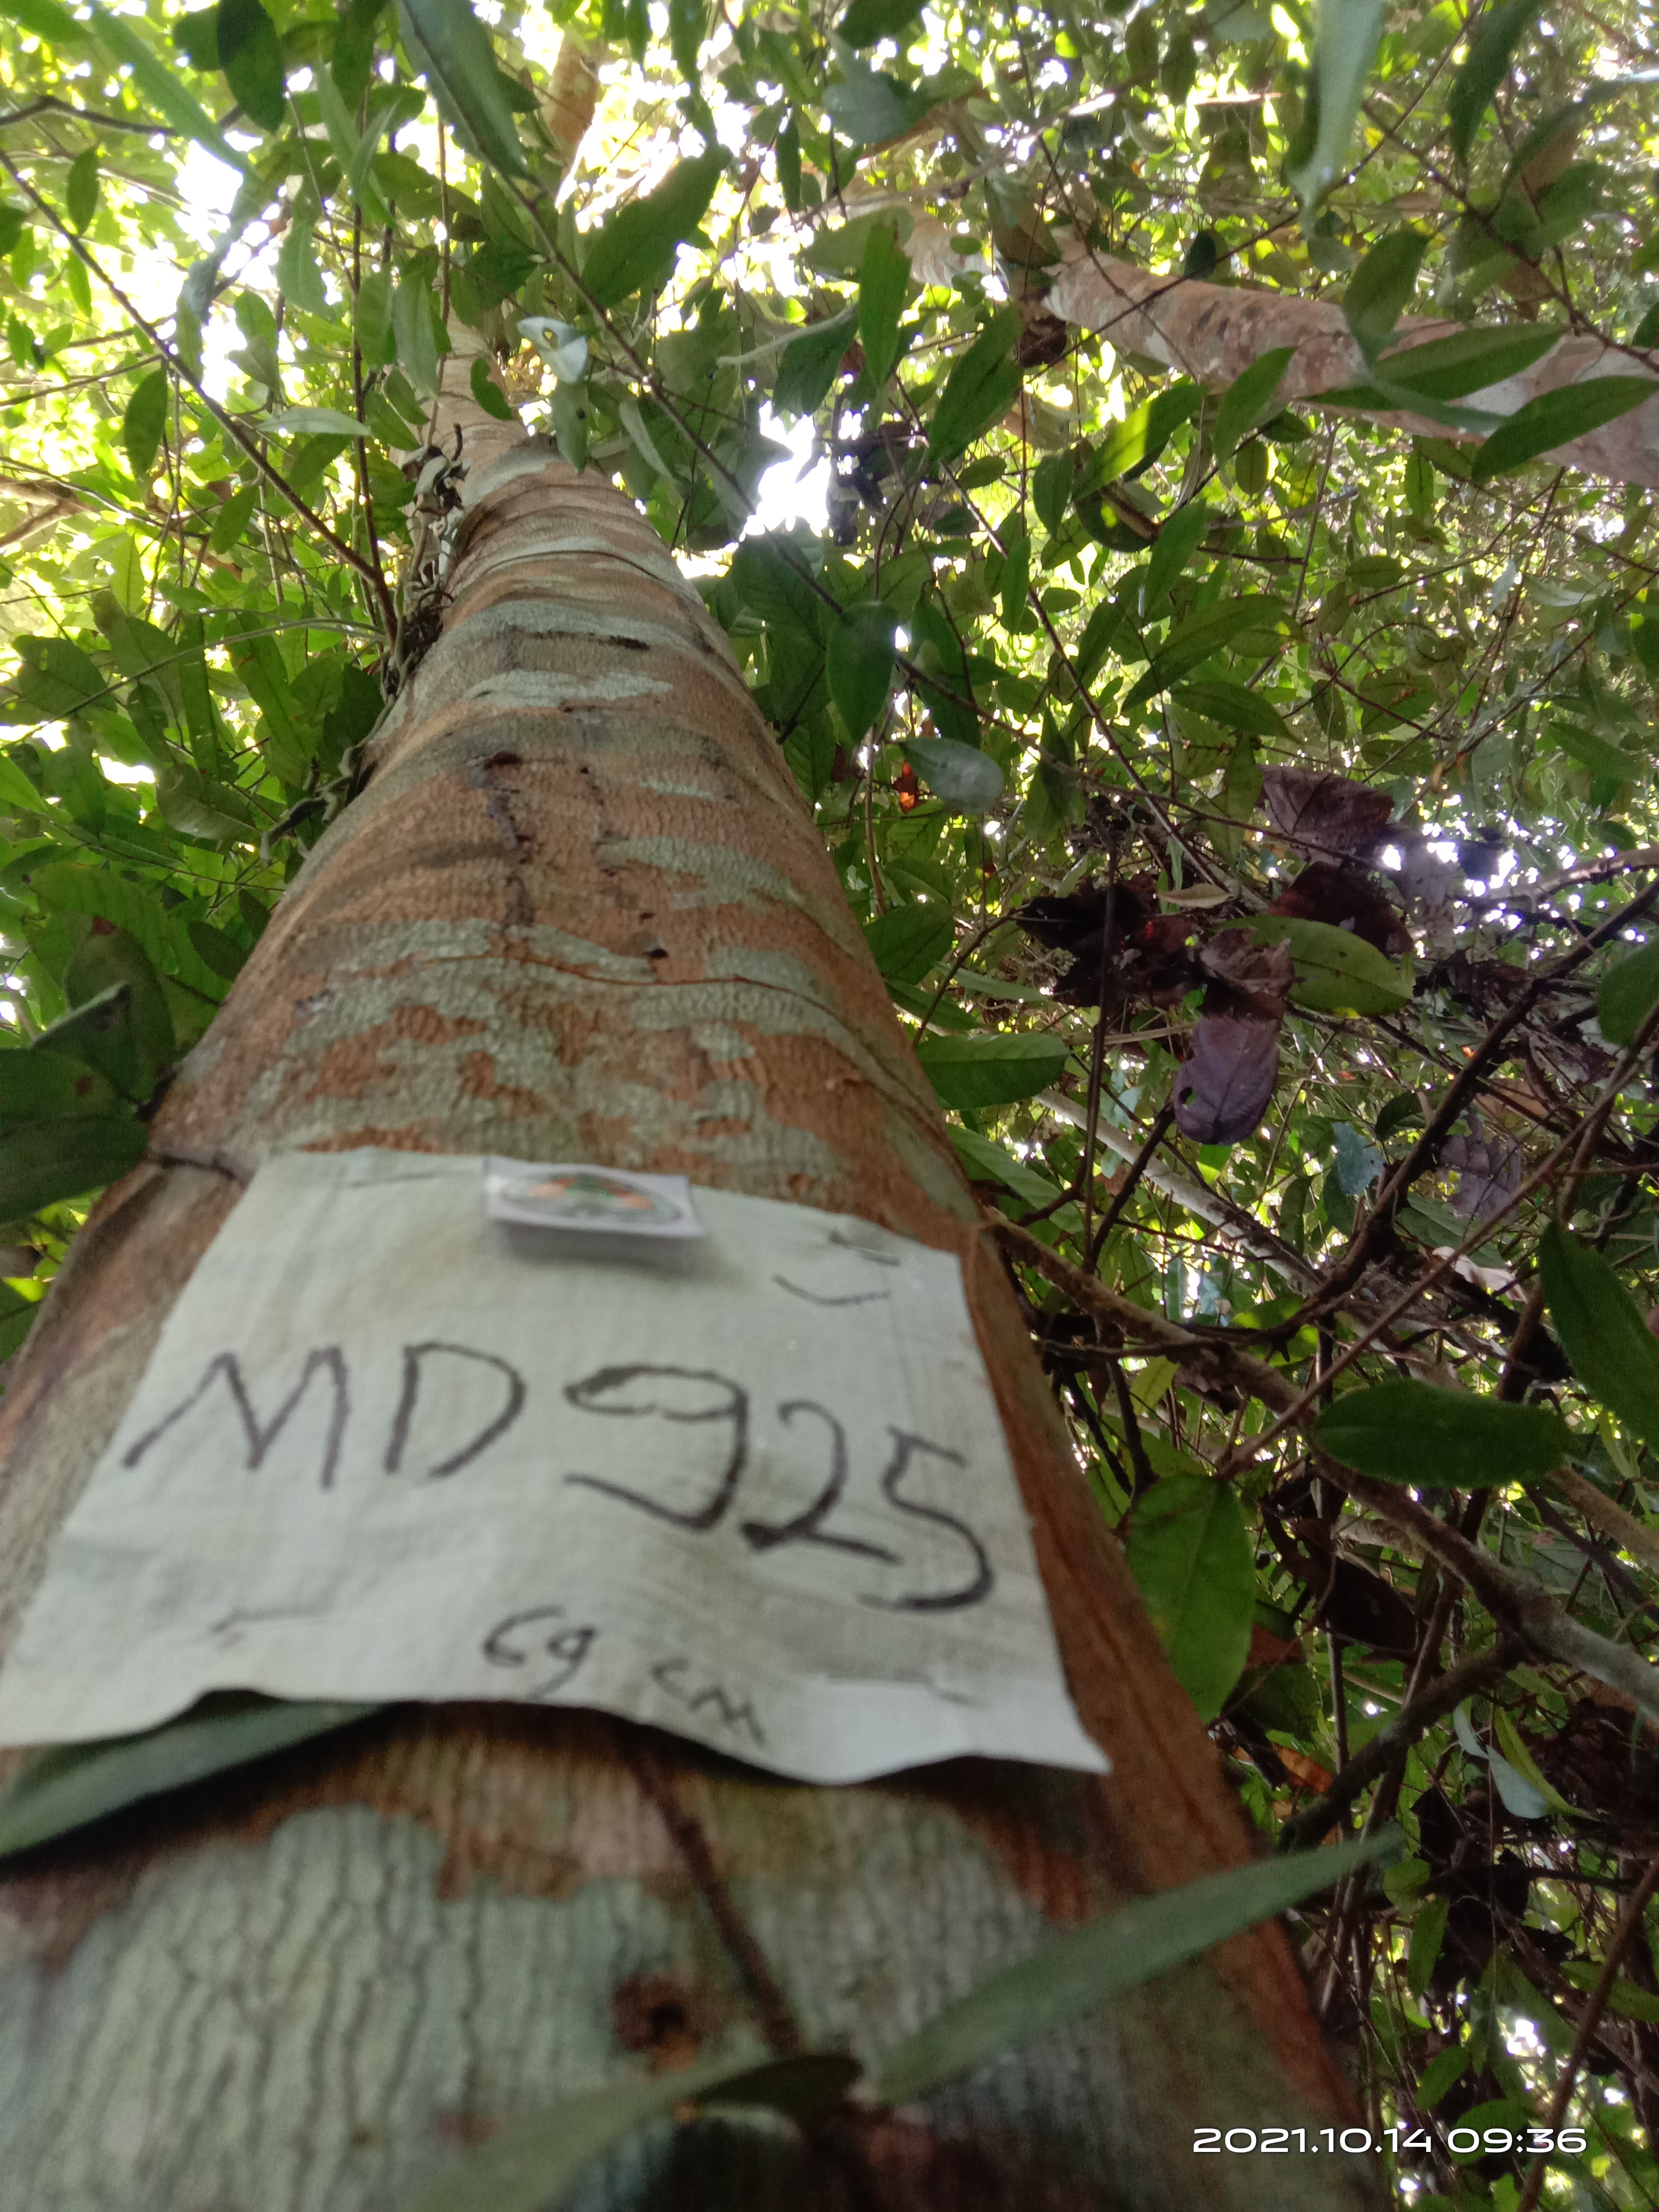 MD 925
69 cm
2021.10.14 09:36